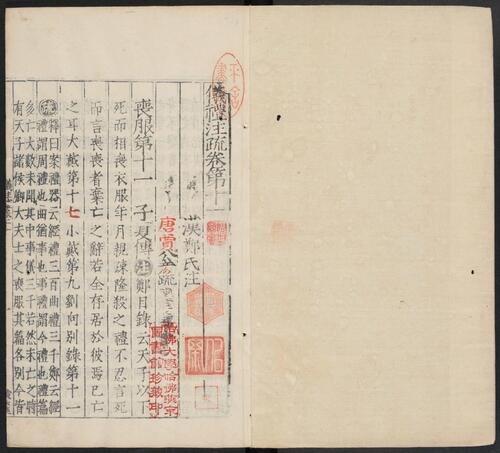 儀禮注疏卷第十一
漢鄭氏注
唐賈公彥疏
喪服第十一 子夏傳 注 鄭目錄云天子以下
死而相喪衣服年月親疎隆殺之禮不忍言死
而言喪喪者棄亡之辭若全存居於彼焉已亡
之耳大戴第十七小戴第九劉向別錄第十一
釋曰案禮器云經禮三百曲禮三千鄭云經
禮謂周禮也曲猶事也事禮謂今禮也禮篇
多亡本數未聞其中事儀三千若然未亡之時
有天子諸侯卿大夫士之喪服其篇各別今皆
哈佛大學哈佛燕京
圖書館珍藏印